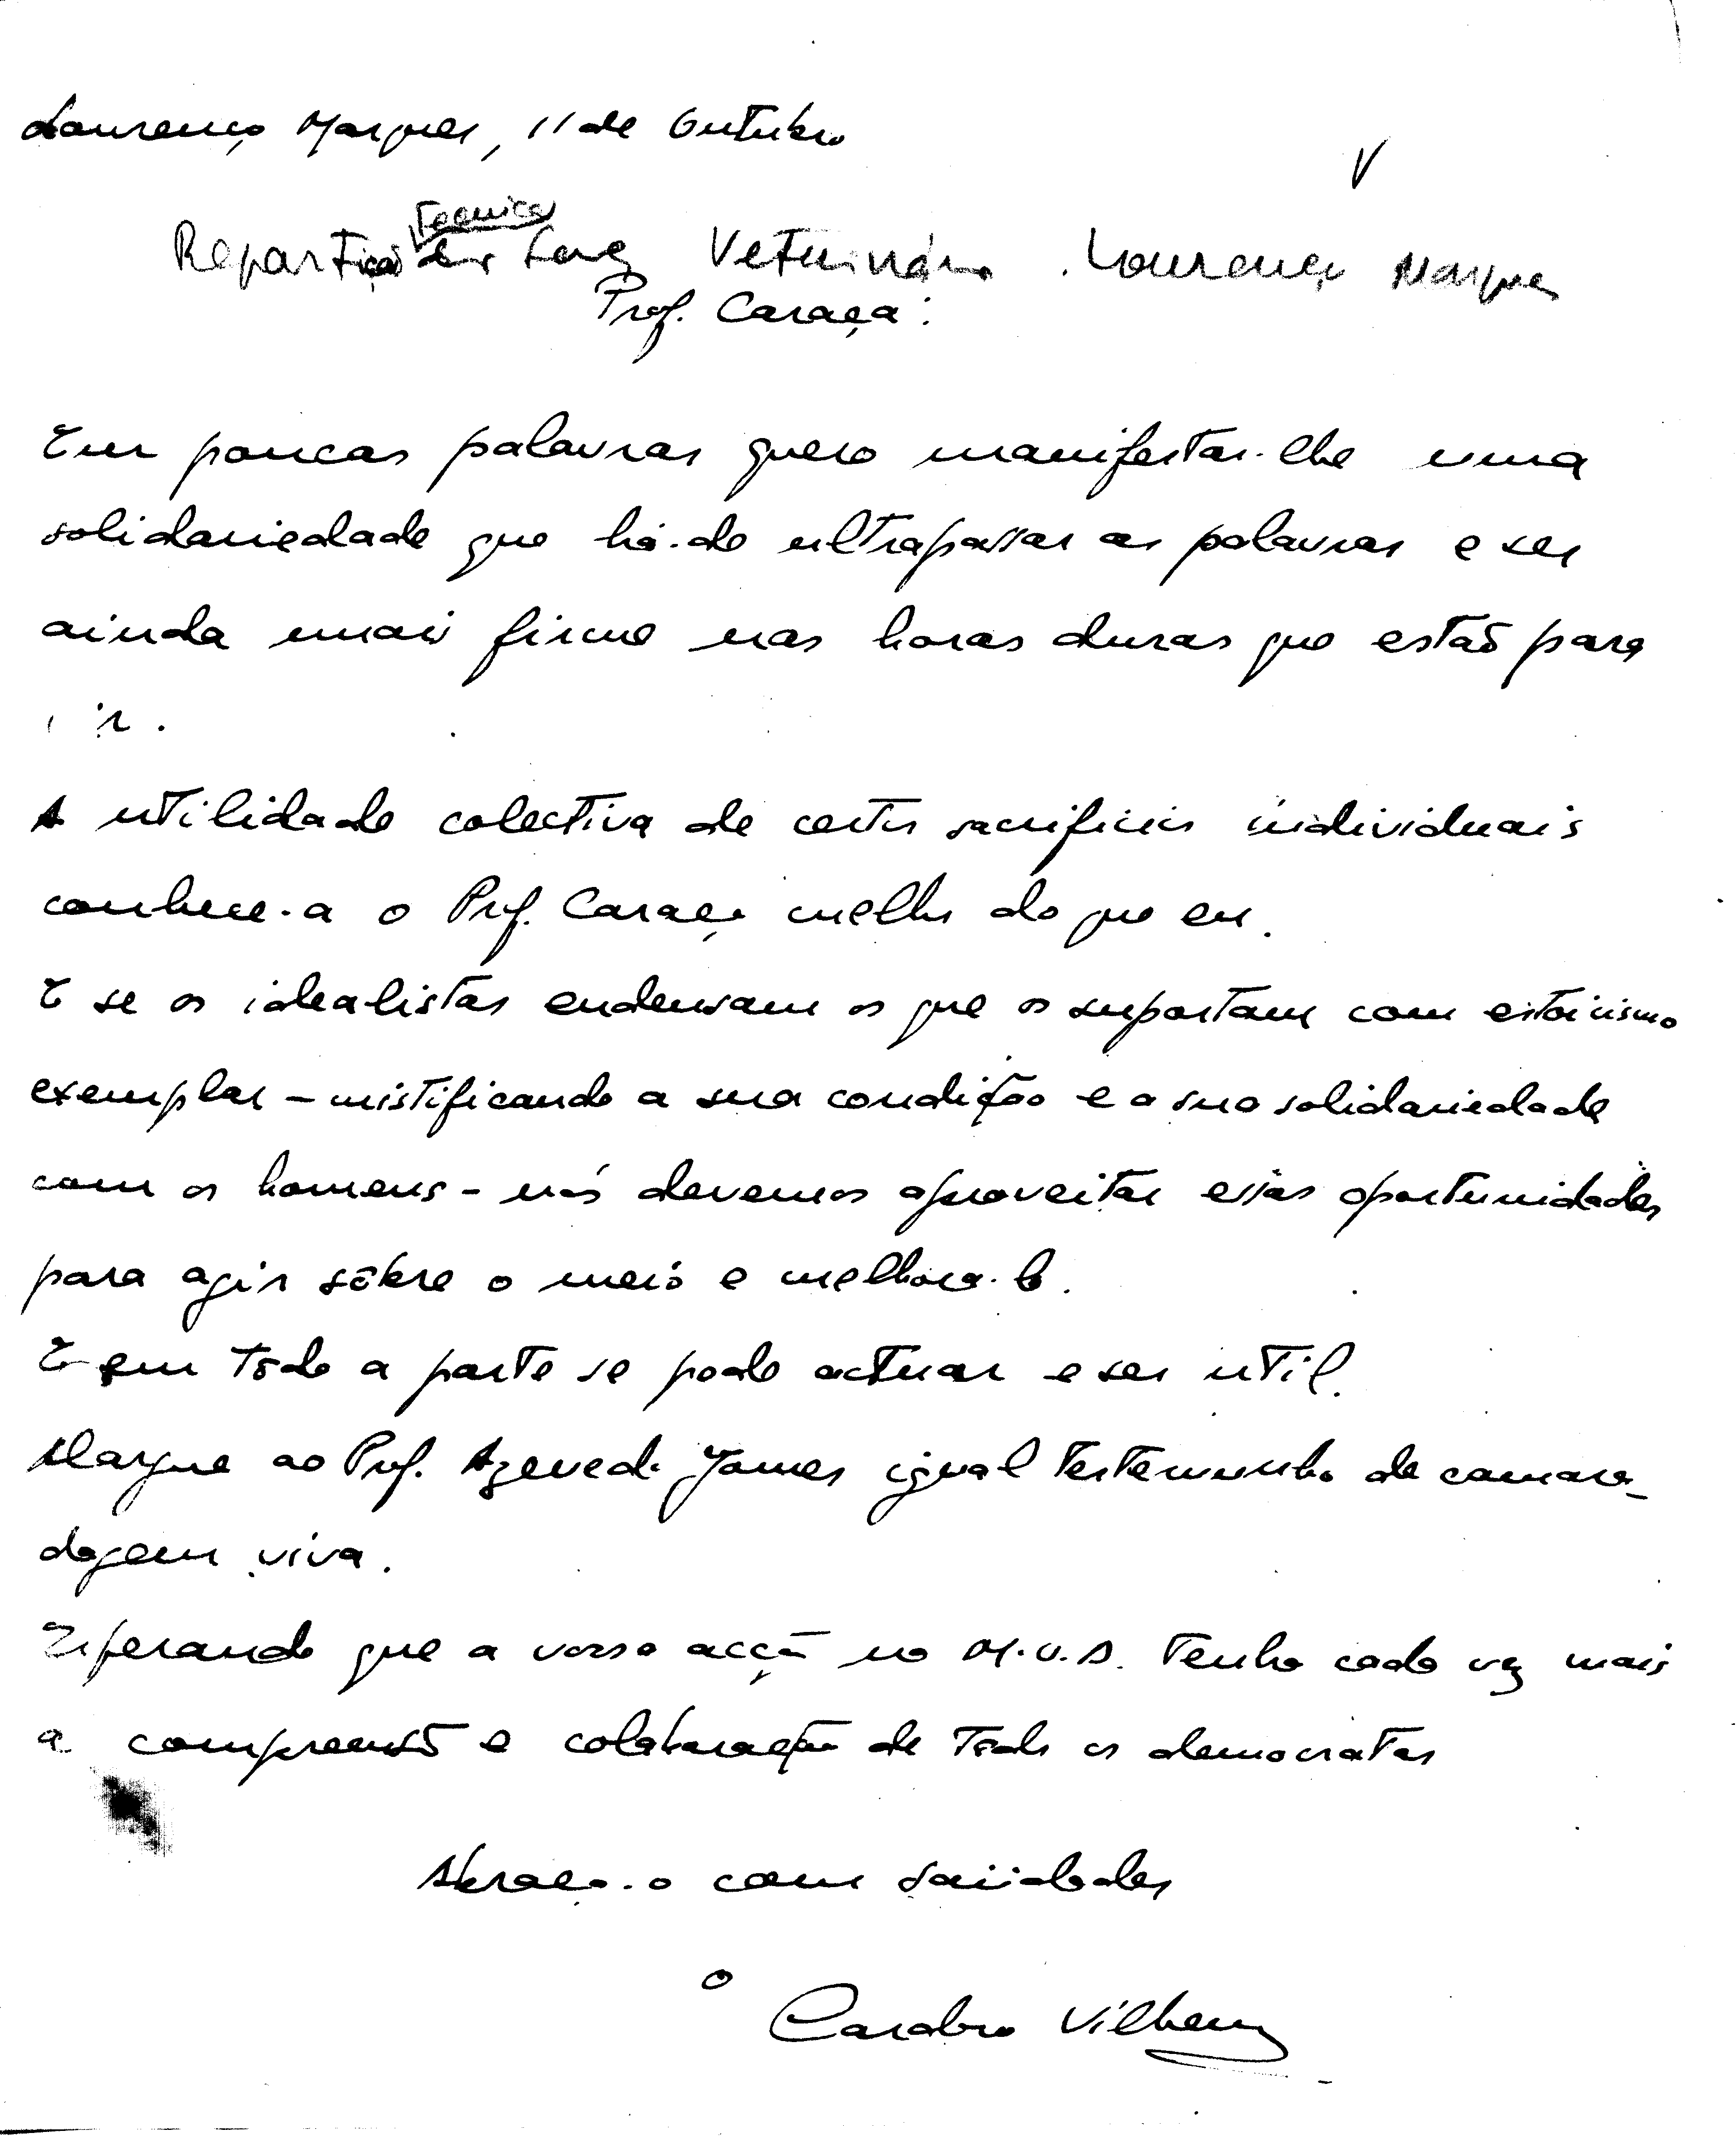 Lourenço Marques, 11 de Outubro
V
Tecnica
Repartição dos Serv Veterinários . Lourenço Marques
Prof. Caraça:
Em poucas palavras quero manifestar-lhe uma
solidariedade que há-de ultrapassar as palavras e ser
ainda mais firme nas horas duras que estão para
A utilidade colectiva de certos sacrificios individuais
conhece-a o Prof. Caraça melhor do que eu.
E se os idealistas endeusam os que os suportam com estoicismo
exemplar - mistificando a sua condição e a sua solidariedade
com os homens - nós devemos aproveitar essas oportunidades
para agir sôbre o meio e melhora-lo.
E em tôda a parte se pode actuar e ser util.
Alargue ao Prof. Azevedo Gomes igual testemunho de camara-
dagem viva.
Esperando que a vossa acção no M.U.D. tenha cada vez mais
a compreensão e colaboração de todos os democratas
Abraça-o com saüdades
o
Cardoso Vilhena